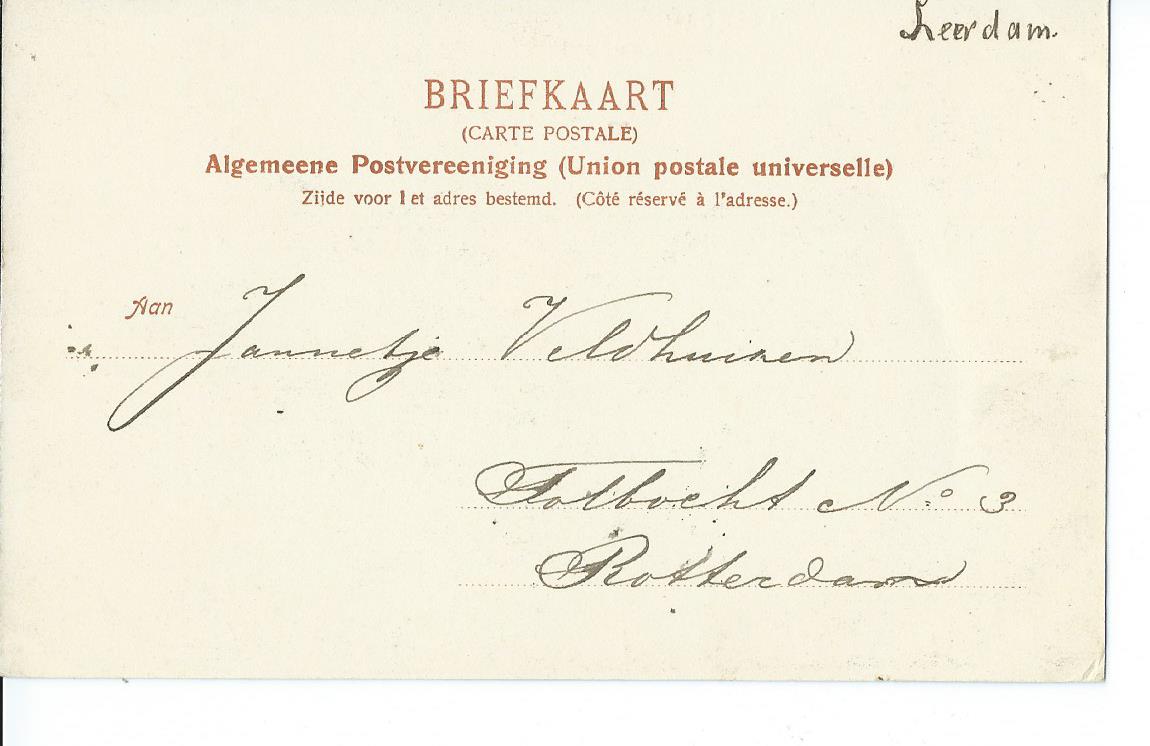 Leerdam.
BRIEFKAART
(CARTE POSTALE)
Algemeene Postvereeniging (Union postale universelle)
Zijde voor het adres bestemd. (Côté réservé à l'adresse.)
Aan Jannetje Veldhuizen
Tolbocht No 3
Rotterdam